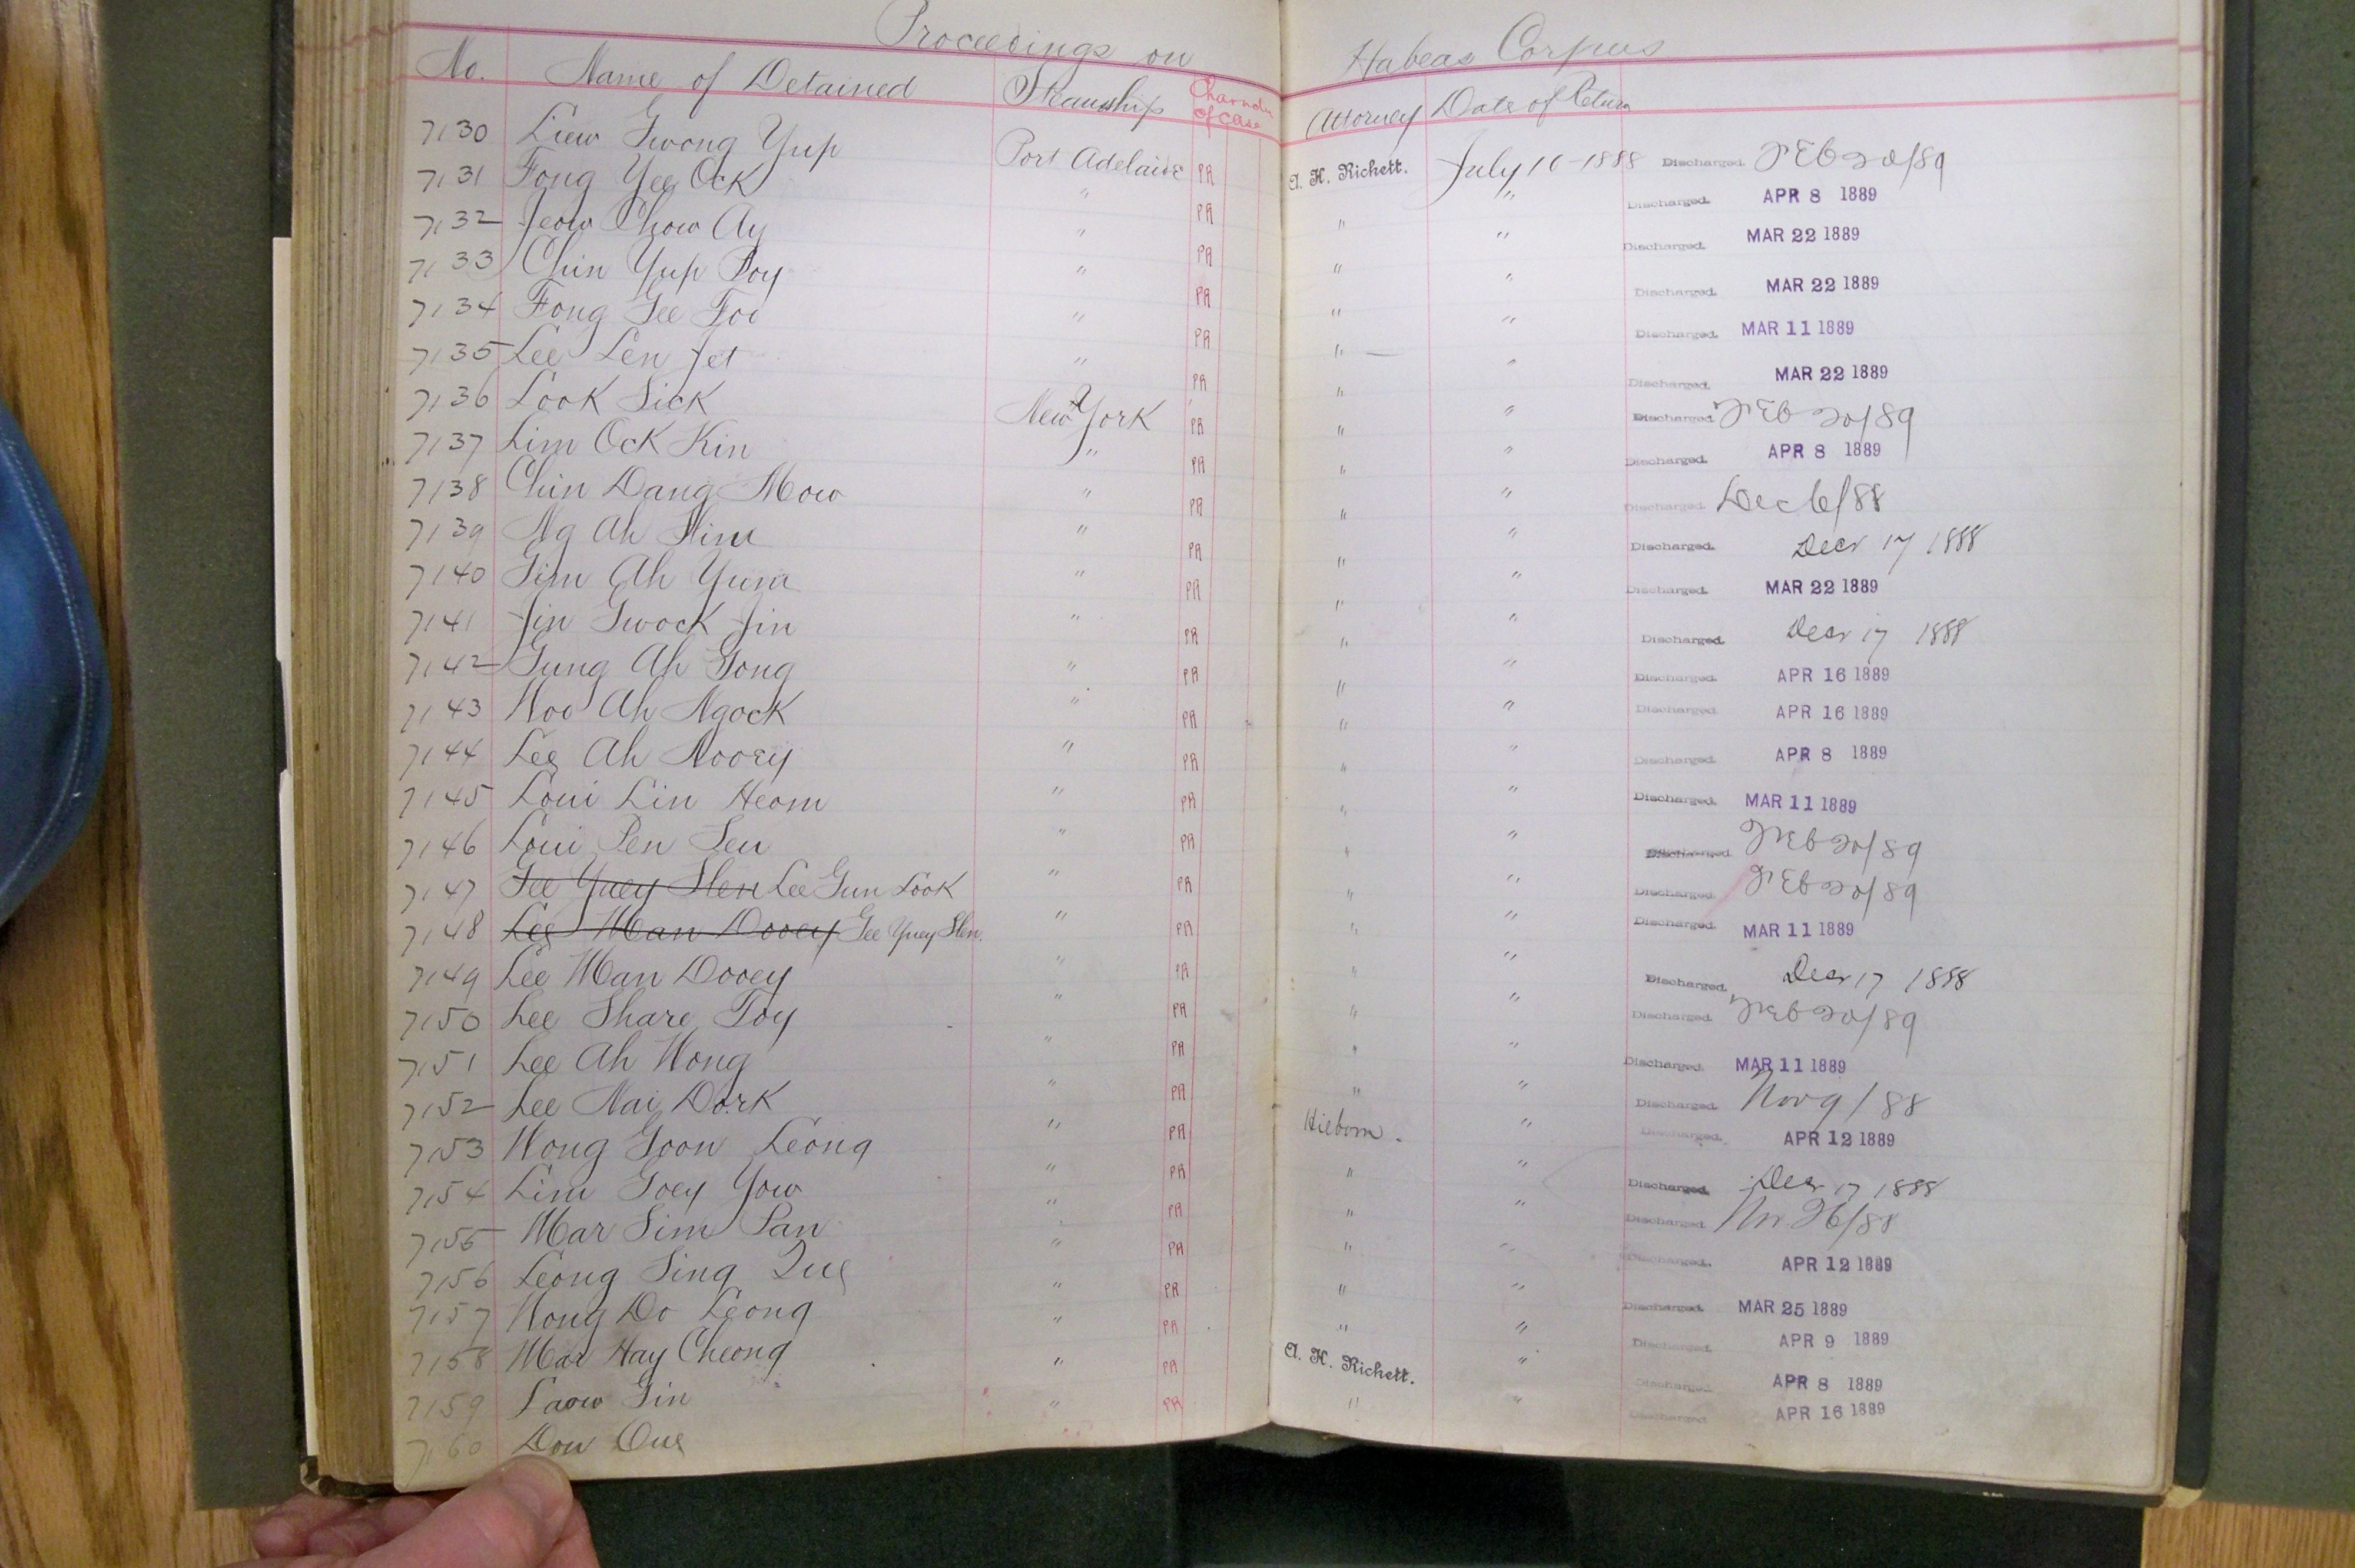 Proceedings on Habeas Corpus
No. Name of Detained Steamship Character of Case Attorney Date of Return
7130 Liew Gwong Yup Port Adelaide PR A. H. Richett. July 10-1888 Discharged. FEB 20/89
7131 Fong Yee Ock " PR " " Discharged. APR 8 1889
7132 Jeow Chow Ay " PR " " Discharged. MAR 22 1889
7133 Chin Yup Poy " PR " " Discharged. MAR 22 1889
7134 Fong Gee Foo " PR " " Discharged. MAR 11 1889
7135 Lee Len Jet " PR " " Discharged. MAR 22 1889
7136 Look Sick New York PR " " Discharged. FEB 20/89
7137 Lim Ock Kin " PR " " Discharged. APR 8 1889
7138 Chin Dang Mow " PR " " Discharged. Dec 6/88
7139 Ng Ah Him " PR " " Discharged. Decr 17 1888
7140 Gim Ah Yum " PR " " Discharged. MAR 22 1889
7141 Jin Gwock Jin " PR " " Discharged. Decr 17 1888
7142 Gung Ah Gong " PR " " Discharged. APR 16 1889
7143 Hoo Ah Ngock " PR " " Discharged. APR 16 1889
7144 Lee Ah Nooey " PR " " Discharged. APR 8 1889
7145 Loui Lin Heom " PR " " Discharged. MAR 11 1889
7146 Loui Pen Seu " PR " " Discharged. FEB 20/89
7147 Gee Yuey Hen Lee Gun Look " PR " " Discharged. FEB 20/89
7148 Lee Man Dooey Gee Yuey Hen. " PR " " Discharged. MAR 11 1889
7149 Lee Man Dooey " PR " " Discharged. Decr 17 1888
7150 Lee Share Toy " PR " " Discharged. FEB 20/89
7151 Lee Ah Hong " PR " " Discharged. MAR 11 1889
7152 Lee Nai Dork " PR " " Discharged. Nov 9/88
7153 Hong Goon Leong " PR Hilborn. " Discharged. APR 12 1889
7154 Lim Goey Yow " PR " " Discharged. Decr 17 1888
7155 Mar Sim Pan " PR " " Discharged. Nov 26/88
7156 Leong Sing Que " PR " " Discharged. APR 12 1889
7157 Hong Do Leong " PR " " Discharged. MAR 25 1889
7158 Mar Hay Cheong " PR " " Discharged. APR 9 1889
7159 Laow Gin " PR A. H. Richett. " Discharged. APR 8 1889
7160 Dow Que " PR " " Discharged. APR 16 1889